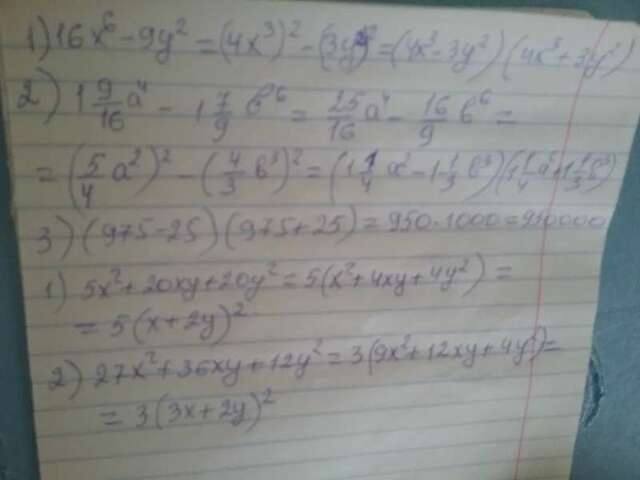 1) 16x⁶ - 9y² = (4x³)² - (3y)² = (4x³ - 3y²)(4x³ + 3y²)
2) 1 9/16 a⁴ - 1 7/9 b⁶ = 25/16 a⁴ - 16/9 b⁶ =
= (5/4 a²)² - (4/3 b³)² = (1 1/4 a² - 1 1/3 b³)(1 1/4 a² + 1 1/3 b³)
3) (975 - 25)(975 + 25) = 950 · 1000 = 950000
1) 5x² + 20xy + 20y² = 5(x² + 4xy + 4y²) =
= 5(x + 2y)²
2) 27x² + 36xy + 12y² = 3(9x² + 12xy + 4y²) =
= 3(3x + 2y)²